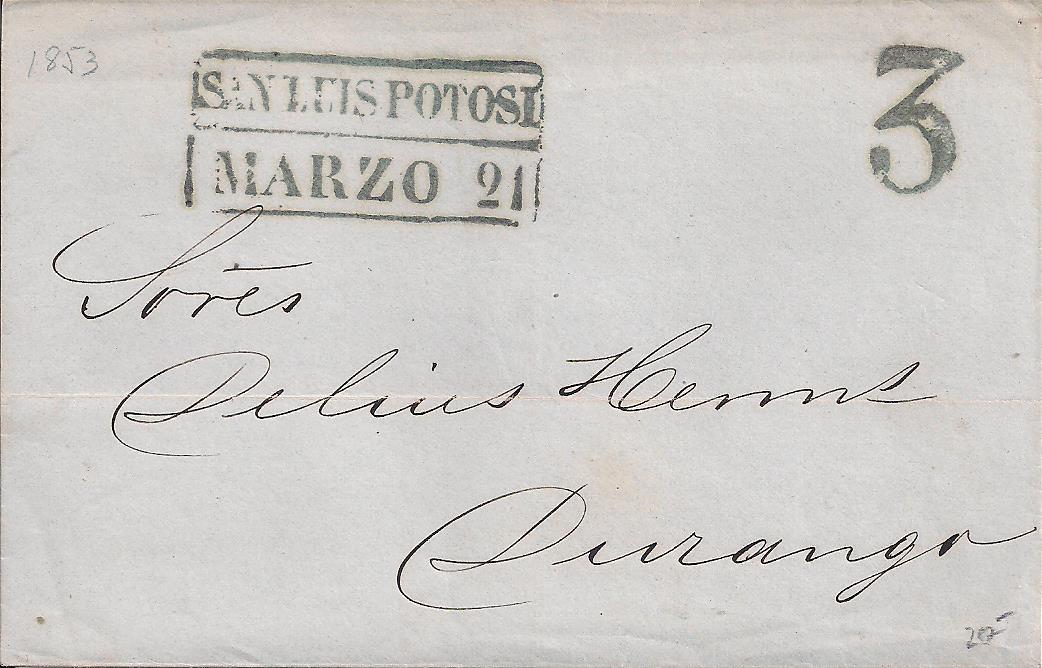 1853
SAN LUIS POTOSI
MARZO 21
3
Sorēs
Delius Herms
Durango